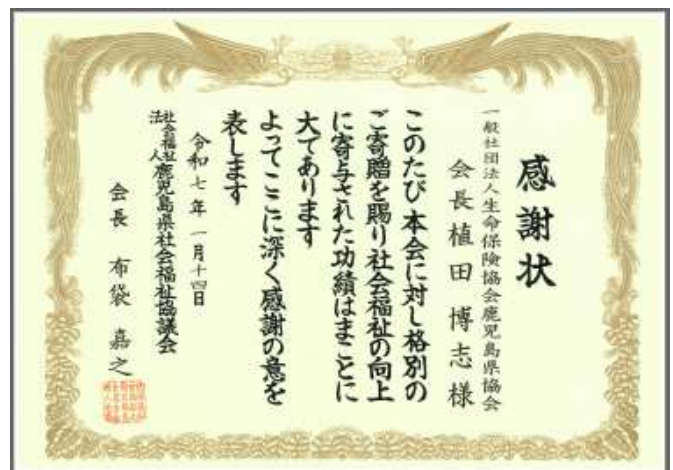 感謝状
一般社団法人生命保険協会鹿児島県協会
会長植田博志様
このたび本会に対し格別の
ご寄贈を賜り社会福祉の向上
に寄与された功績はまことに
大であります
よってここに深く感謝の意を
表します
令和七年一月十四日
社会福祉法人鹿児島県社会福祉協議会
会長布袋嘉之